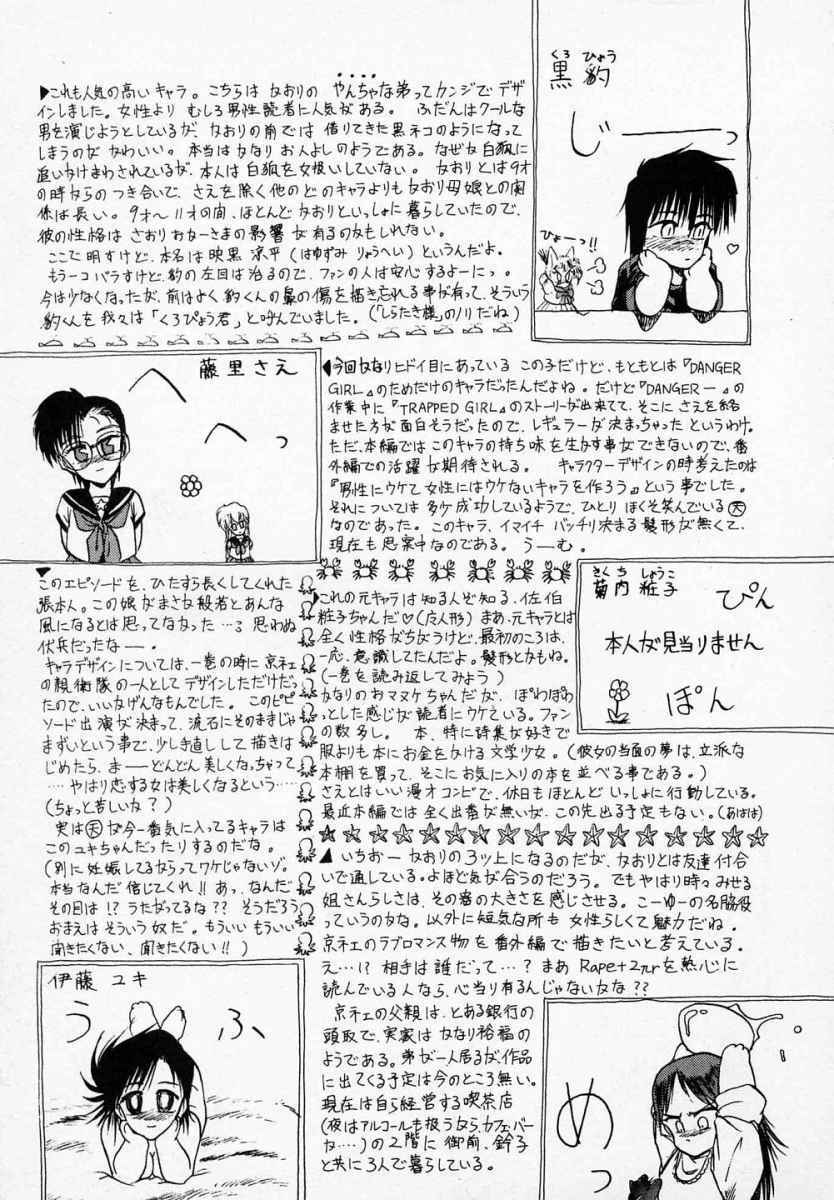 ▶これも人気の高いキャラ。こちらは かおりの やんちゃな弟ってカンジで デザ
インしました。女性より むしろ男性読者に人気がある。 ふだんはクールな
男を演じようとしているが、かおりの前では 借りてきた黒ネコのようになって
しまうのが かわいい。本当はかなり お人よしのようである。なぜか白狐に
追いかけまわされているが、本人は白狐を女扱いしていない。 かおりとは9才
の時からの つき合いで、さえを除く他のどのキャラよりも かおり母娘との関
係は長い。 9才〜11才の間、ほとんど かおりといっしょに暮らしていたので、
彼の性格は さおりおかーさまの影響が有るのかもしれない。
ここで明すけど、本名は映黒 涼平(はゆずみ りょうへい)というんだよ。
もう一コバラすけど、豹の左目は治るので、ファンの人は安心するよーにっ。
今は少なくなったが、前はよく豹くんの鼻の傷を描き忘れる事が有って、そういう
豹くんを我々は「くろぴょう君」と呼んでいました。(「しらたき様」のノリだね)
くろ ひょう
黒 豹
じーっ
ひょーっ!!
藤里さえ
へへっ
◀今回かなりヒドイ目にあっている この子だけど、もともとは『DANGER
GIRL』のためだけのキャラだったんだよね。だけど『DANGER―』の
作業中に『TRAPPED GIRL』のストーリーが出来てて、そこに さえを絡
ませた方が面白そうだったので、レギュラーが決まっちゃったというわけ。
ただ、本編ではこのキャラの持ち味を生かす事ができないので、番
外編での活躍が期待される。 キャラクターデザインの時考えたのは
『男性にウケて女性にはウケないキャラを作ろう』という事でした。
それについては多少成功しているようで、ひとり ほくそ笑んでいる㊝
なのであった。このキャラ、イマイチ バッチリ決まる髪形が無くて、
現在も思案中なのである。うーむ。
▼
このエピソードを、ひたすら長くしてくれた
張本人。この娘がまさか般若とあんな
風になるとは思ってなかった…る 思わぬ
伏兵だったなー。
キャラデザインについては、一巻の時に京ネェ
の親衛隊の一人としてデザインしただけだっ
たので、いいかげんなもんでした。このピピ
ソード出演が決まって、流石にそのままじゃ
まずいという事で、少し手直しして描きは
じめたら、まーどんどん美しくなっちゃって
……やはり恋する女は美しくなるという……
(ちょっと苦しいな?)
実は㊝が今一番気に入ってるキャラは
このユキちゃんだったりするのだな。
(別に妊娠してるからってワケじゃないゾ。
本当なんだ信じてくれ!! あっ、なんだ
その目は!? うたがってるな?? そうだろう
おまえはそういう奴だ。もういい もういい
聞きたくない、聞きたくない!!)
伊藤 ユキ
うふ
きくち しょうこ
菊内 粧子
ぴん
本人が見当りません
ぽん
▶これの元キャラは知る人ぞ知る、佐伯
粧子ちゃんだ♡(広人形)まあ、元キャラとは
全く性格がちがうけど、最初のころは、
一応、意識してたんだよ。髪形とかもね。
(一巻を読み返してみよう)
かなりのおマヌケちゃんだが、ぽわぽわ
っとした感じが読者にウケている。ファン
の数多し。 本、特に詩集が好きで
服よりも本にお金をかける文学少女。(彼女の当面の夢は、立派な
本棚を買って、そこにお気に入りの本を並べる事である。)
さえとはいい漫才コンビで、休日もほとんどいっしょに行動している。
最近本編では全く出番が無いが、この先出る予定もない。(あはは)
▲いちおー かおりの3ッ上になるのだが、かおりとは友達付合
いで通している。よほど気が合うのだろう。でもやはり時々みせる
姐さんらしさは、その器の大きさを感じさせる。こーゆーの名脇役
っていうのかな。以外に短気な所も女性らしくて魅力だね。
京ネェのラブロマンス物を番外編で描きたいと考えている。
え…!? 相手は誰だって…? まあ Rape+2πrを熱心に
読んでいる人なら、心当り有るんじゃないかな??
京ネェの父親は、とある銀行の
頭取で、実家はかなり裕福の
ようである。弟が一人居るが作品
に出てくる予定は今のところ無い。
現在は自ら経営する喫茶店
(夜はアルコールも扱うから、カフェバー
か……)の2階に 御前、鈴子
と共に3人で暮らしている。
めっ